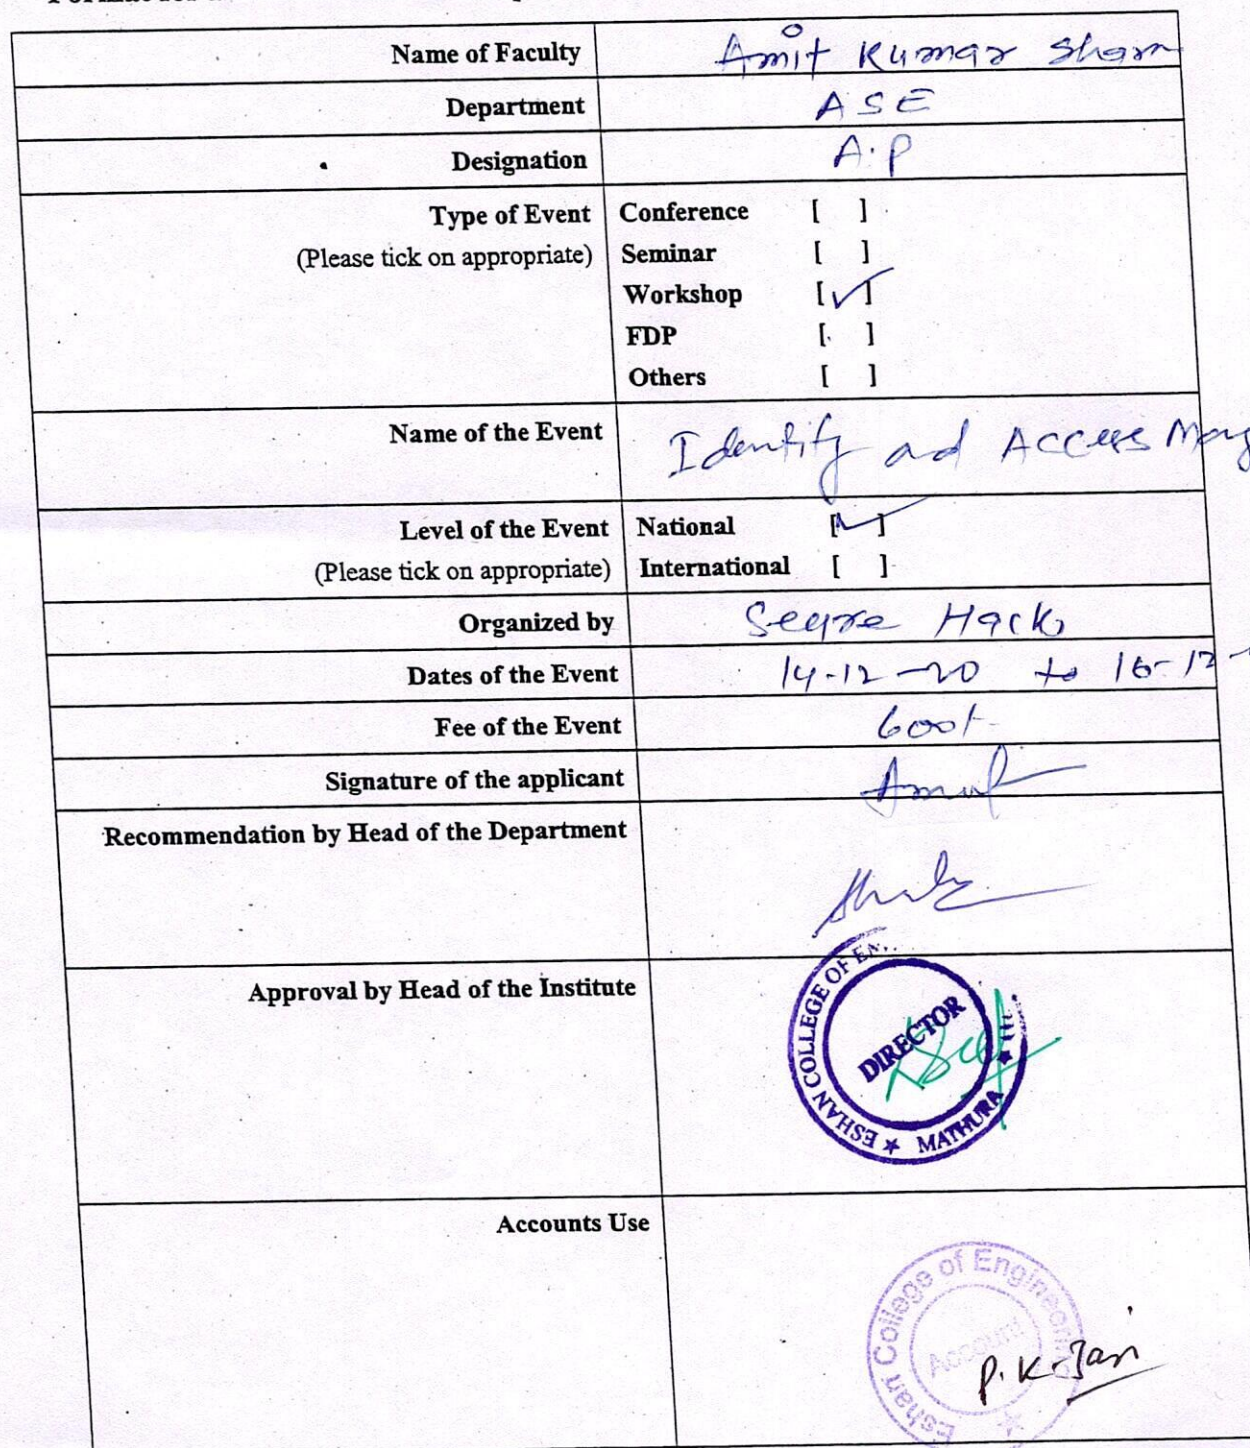 Name of Faculty Amit Kumar Sharm
Department ASE
Designation A.P
Type of Event Conference [ ]
(Please tick on appropriate) Seminar [ ]
Workshop [✓]
FDP [ ]
Others [ ]
Name of the Event Identity and Access Mang
Level of the Event National [✓]
(Please tick on appropriate) International [ ]
Organized by Secure Hack
Dates of the Event 14-12-20 to 16-12-
Fee of the Event 600/-
Signature of the applicant Amit
Recommendation by Head of the Department
Approval by Head of the Institute
ESHAN COLLEGE OF EN
DIRECTOR
★ MATHURA ★
Accounts Use
Eshan College of Engineering
Account
P.K. Jain